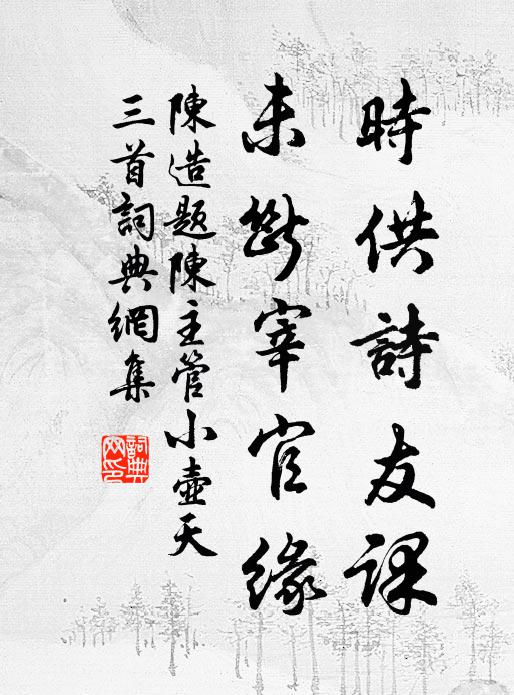 時供詩友課
未斷宰官緣
陳造題陳主管小壺天
三首詞典網集
詞典网印